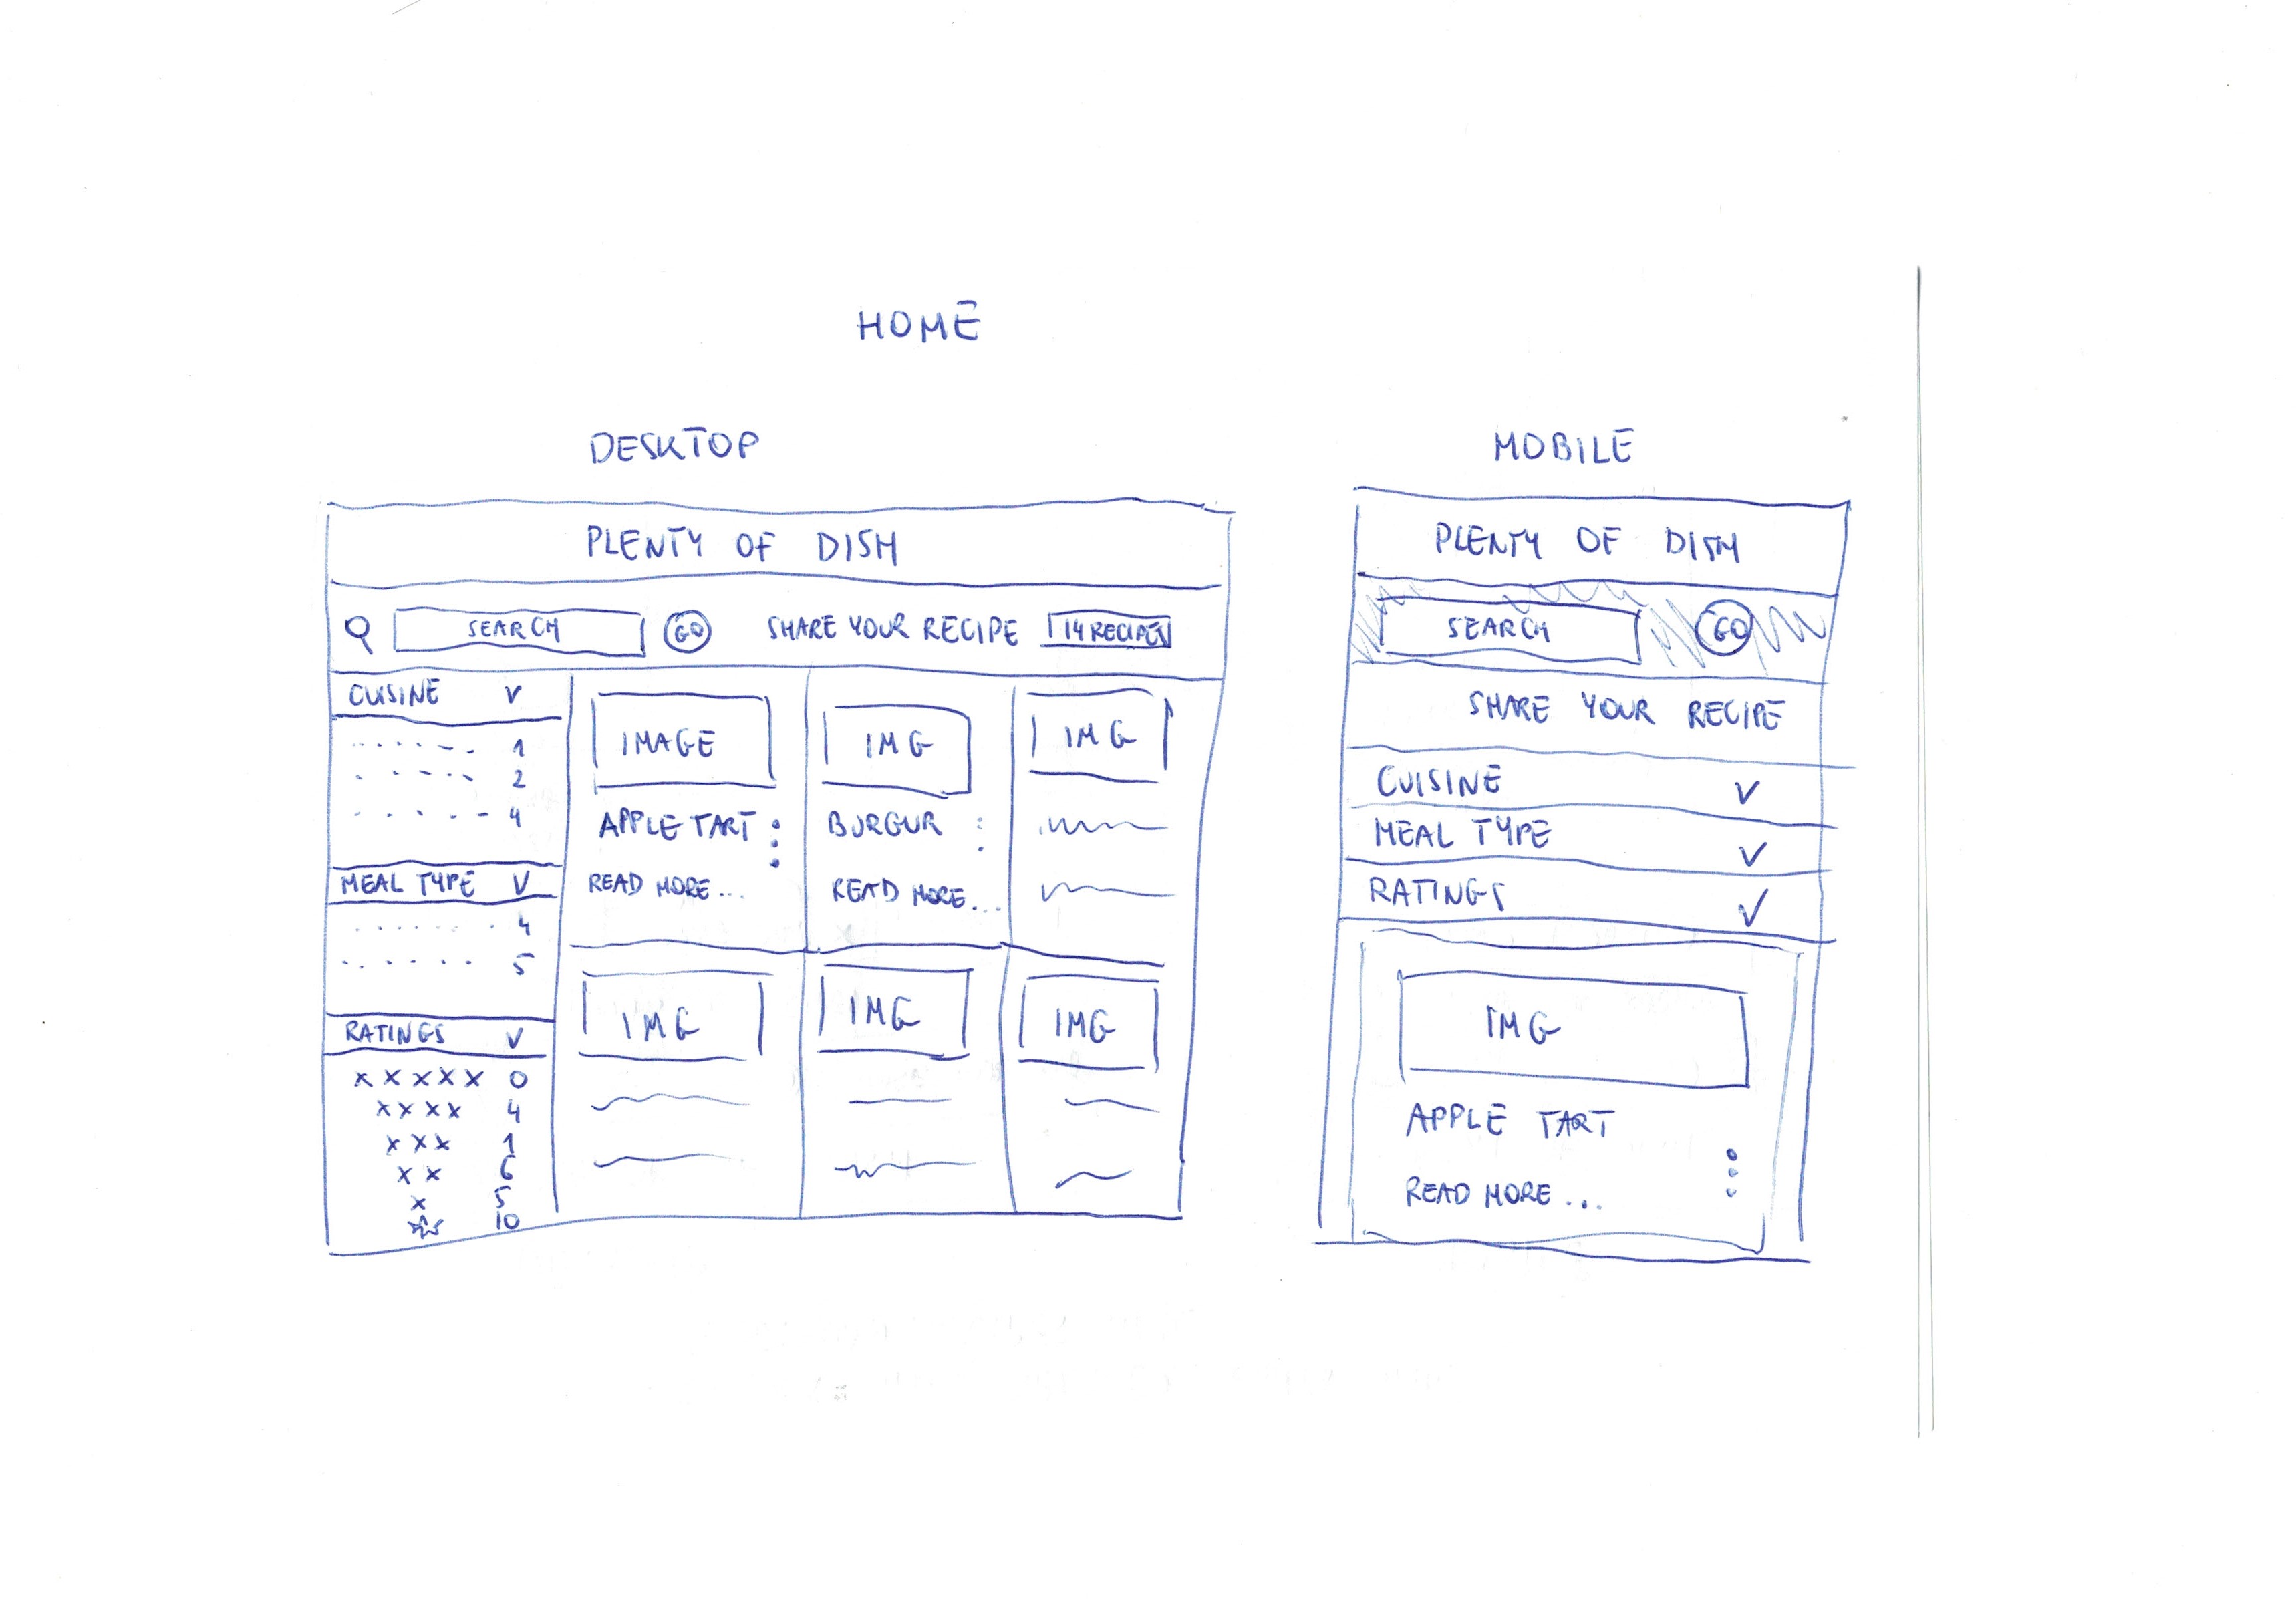 HOME
DESKTOP
PLENTY OF DISH
SEARCH GO SHARE YOUR RECIPE 14 RECIPES
CUISINE V
1
2
4
MEAL TYPE V
4
5
RATINGS V
X X X X X 0
X X X X 4
X X X 1
X X 6
X 5
10
IMAGE
APPLE TART
READ MORE...
IMG
BURGUR
READ MORE...
IMG
IMG
IMG
IMG
MOBILE
PLENTY OF DISH
SEARCH GO
SHARE YOUR RECIPE
CUISINE V
MEAL TYPE V
RATINGS V
IMG
APPLE TART
READ MORE...